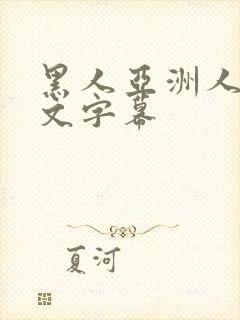 黑人亞洲人
文字幕
夏河